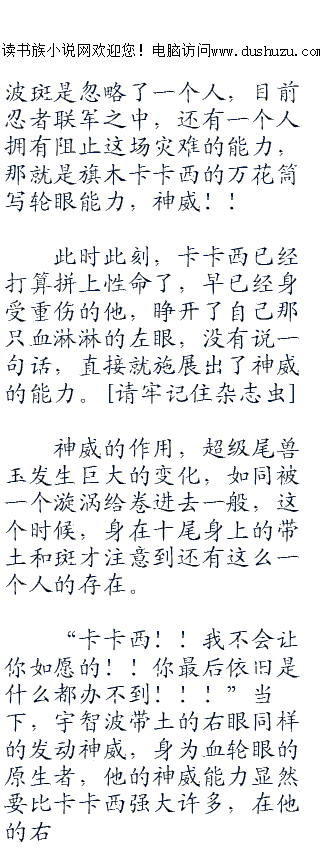 读书族小说网欢迎您！电脑访问www.dushuzu.com
波斑是忽略了一个人，目前
忍者联军之中，还有一个人
拥有阻止这场灾难的能力，
那就是旗木卡卡西的万花筒
写轮眼能力，神威！！
此时此刻，卡卡西已经
打算拼上性命了，早已经身
受重伤的他，睁开了自己那
只血淋淋的左眼，没有说一
句话，直接就施展出了神威
的能力。[请牢记住杂志虫]
神威的作用，超级尾兽
玉发生巨大的变化，如同被
一个漩涡给卷进去一般，这
个时候，身在十尾身上的带
土和斑才注意到还有这么一
个人的存在。
“卡卡西！！我不会让
你如愿的！！你最后依旧是
什么都办不到！！！”当
下，宇智波带土的右眼同样
的发动神威，身为血轮眼的
原生者，他的神威能力显然
要比卡卡西强大许多，在他
的右